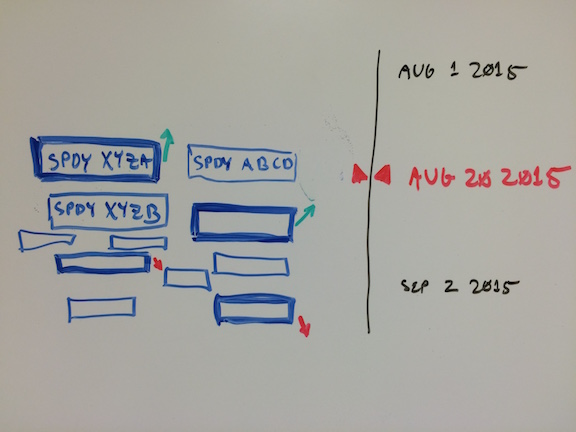 SPDY XYZA
SPDY ABCD
SPDY XYZB
AUG 1 2015
AUG 20 2015
SEP 2 2015